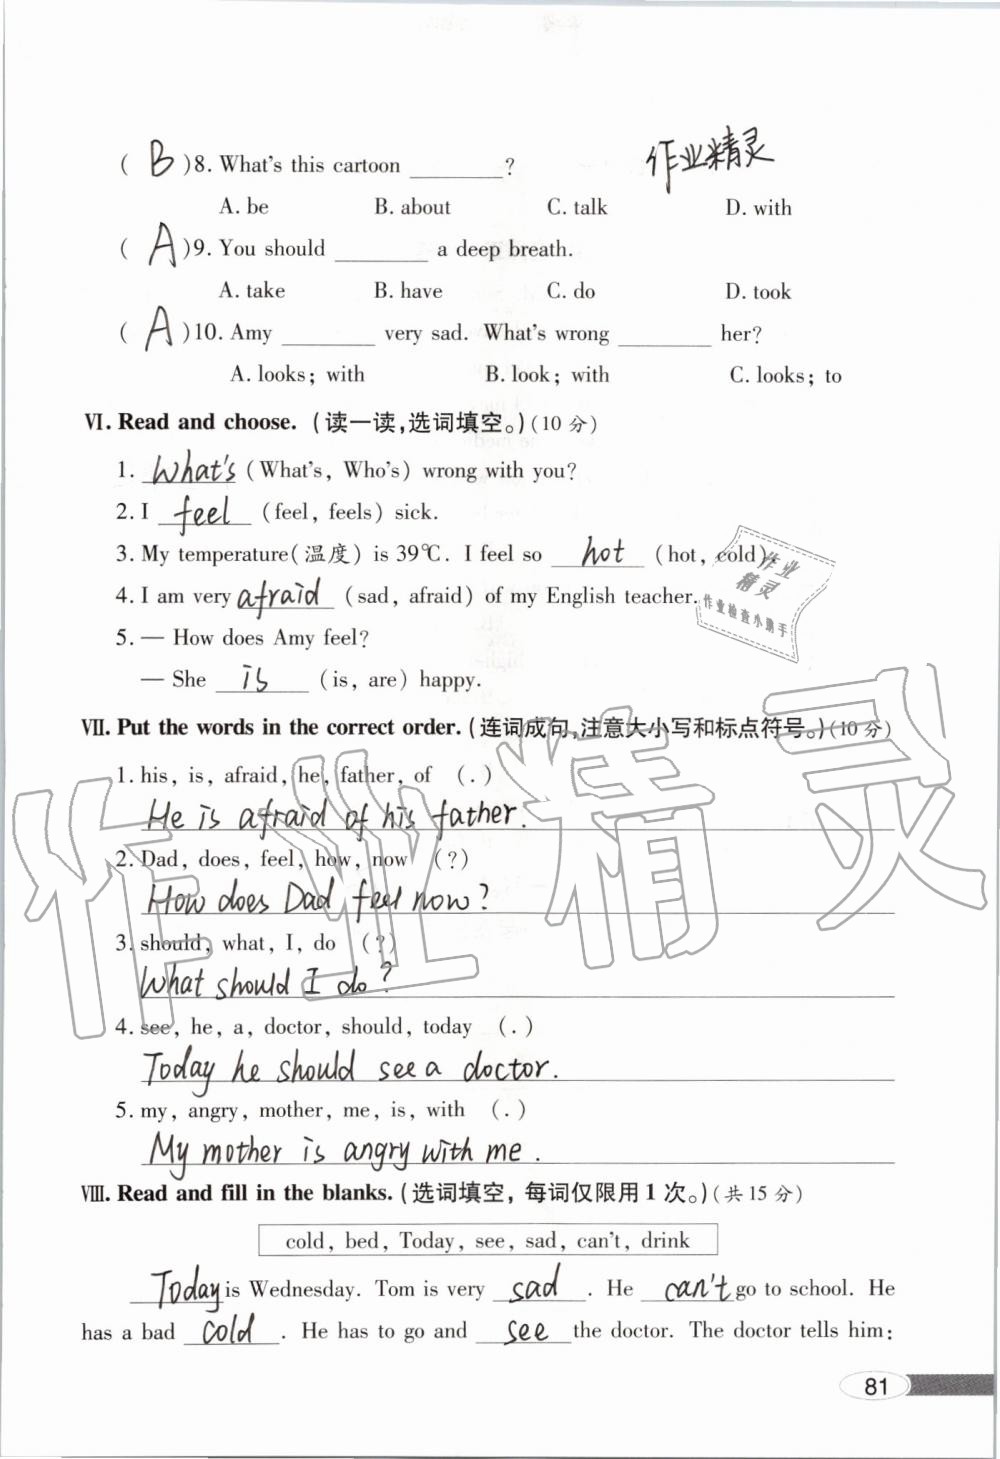 ( B )8. What's this cartoon ________? 作业精灵
A. be B. about C. talk D. with
( A )9. You should ________ a deep breath.
A. take B. have C. do D. took
( A )10. Amy ________ very sad. What's wrong ________ her?
A. looks; with B. look; with C. looks; to
Ⅵ. Read and choose. (读一读,选词填空。)(10 分)
1. What's (What's, Who's) wrong with you?
2. I feel (feel, feels) sick.
3. My temperature(温度) is 39℃. I feel so hot (hot, cold).
4. I am very afraid (sad, afraid) of my English teacher.
作业
精灵
作业检查小助手
5. — How does Amy feel?
— She is (is, are) happy.
Ⅶ. Put the words in the correct order. (连词成句,注意大小写和标点符号。)(10 分)
1. his, is, afraid, he, father, of (.)
He is afraid of his father.
2. Dad, does, feel, how, now (?)
How does Dad feel now?
3. should, what, I, do (?)
What should I do?
4. see, he, a, doctor, should, today (.)
Today he should see a doctor.
5. my, angry, mother, me, is, with (.)
My mother is angry with me.
作业精灵
Ⅷ. Read and fill in the blanks. (选词填空, 每词仅限用 1 次。)(共 15 分)
cold, bed, Today, see, sad, can't, drink
Today is Wednesday. Tom is very sad. He can't go to school. He
has a bad cold. He has to go and see the doctor. The doctor tells him:
81